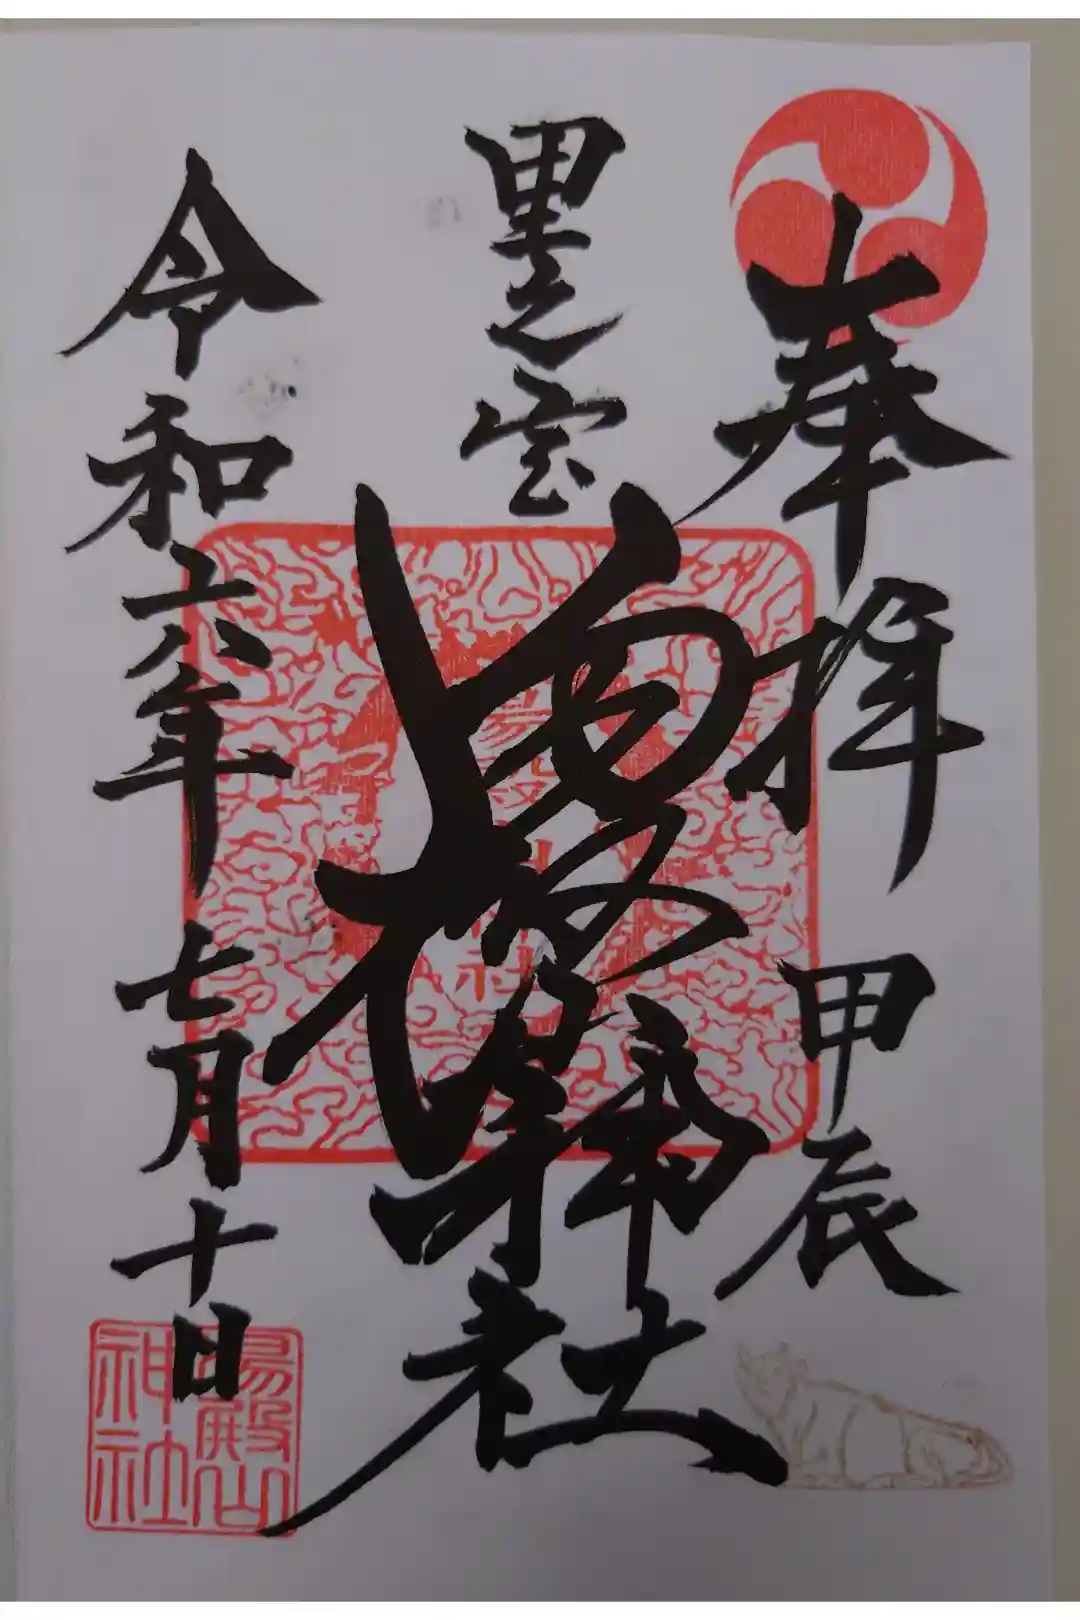 奉拝 甲辰
里之宮
湯殿山神社
令和六年七月十日
湯殿山
神社